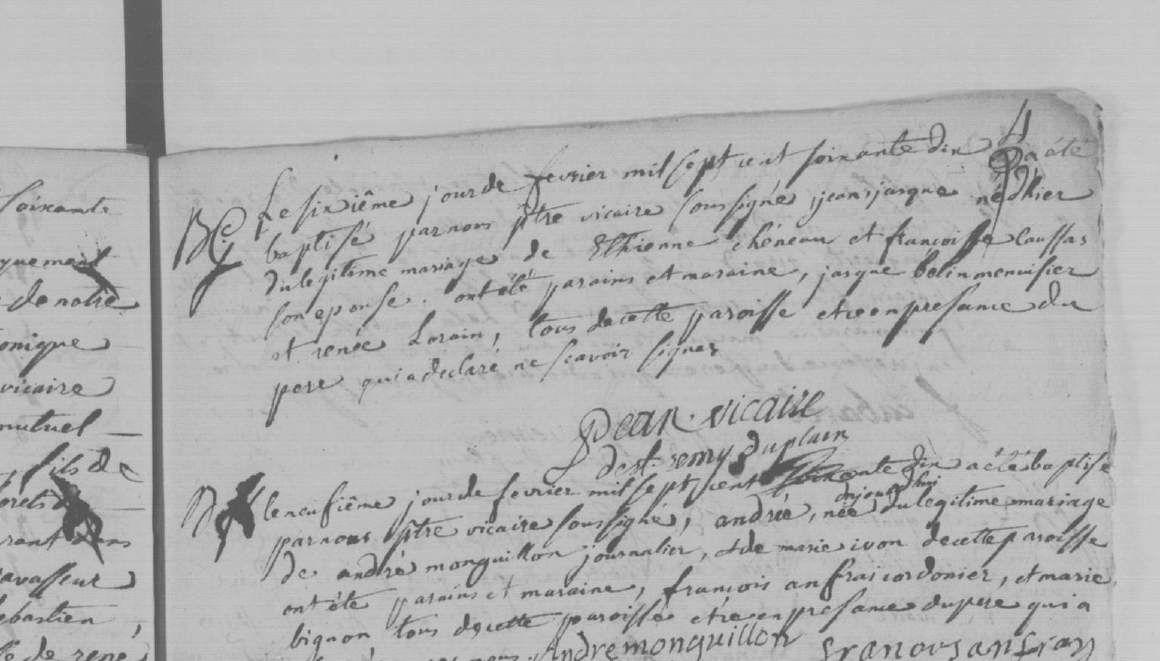 soixante
quement
de notre
onique
vicaire
mutuel
fils de
rant dans
avasseur
ebastien,
de rené
4
Le sixiême jour de fevrier mil sept cent soixante dix a été
B baptisé par nous ptre vicaire soussigné, jean jasque né d'hier
du legitime mariage de Ethienne chéneau et françoisse caussas
son epouse. ont été parains et maraine, jasque belin menuisier
et renée Lorain, tous de cette paroisse et ce en presance du
pere qui a declaré ne scavoir signer
Dean vicaire
de st remy du plain
B le neufiême jour de fevrier mil sept cent soixante dix a été baptisé
par nous ptre vicaire soussigné, andrée, née aujourdhui du legitime mariage
de andré monguillon journalier, et de marie ivon de cette paroisse
ont été parains et maraine, françois anfrai cordonier, et marie
bignon tous de cette paroisse et ce en presance du pere qui a
Andre monguillon francois anfray